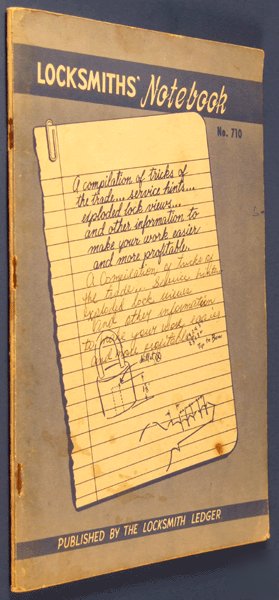 LOCKSMITHS' Notebook
No. 710
A compilation of tricks of
the trade... service hints...
exploded lock views...
and other information to
make your work easier
and more profitable.
A Compilation of tricks of
the trade... Service hints
exploded lock views
and other information
to make your work easier
and more profitable
PUBLISHED BY THE LOCKSMITH LEDGER